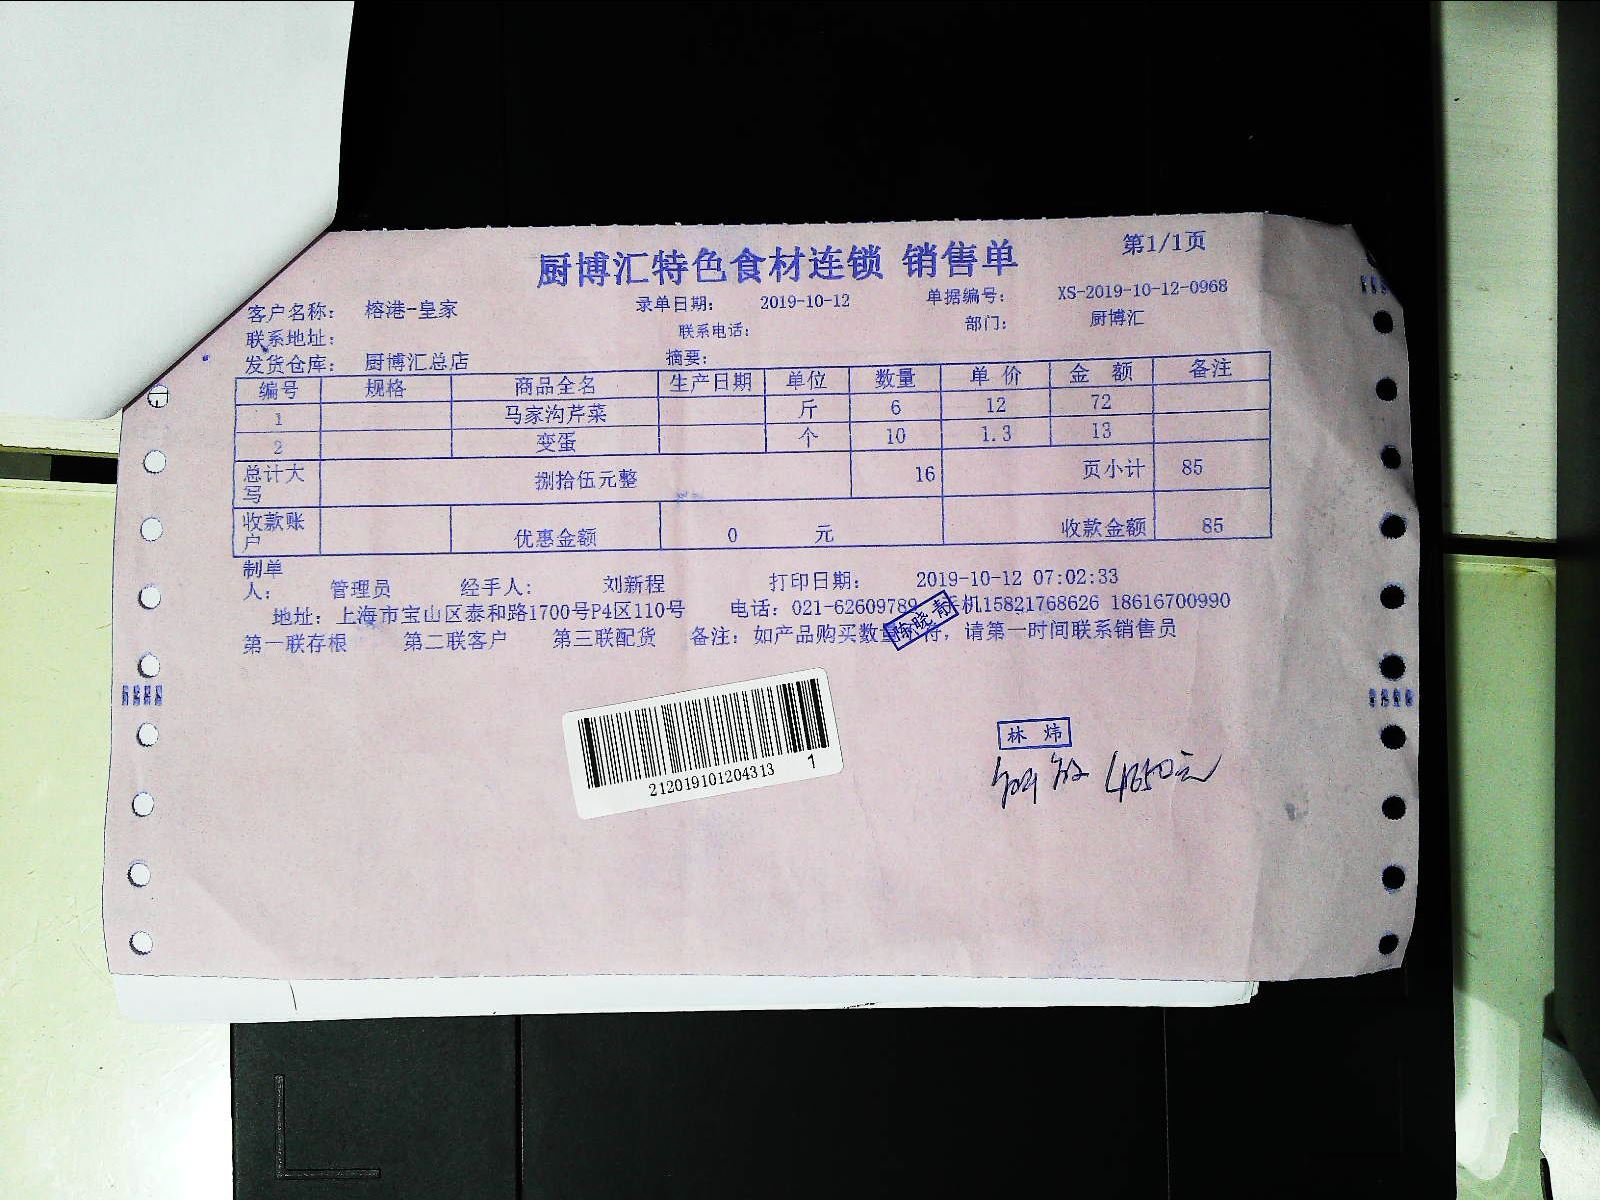 厨博汇特色食材连锁 销售单 第1/1页
客户名称: 榕港-皇家 录单日期: 2019-10-12 单据编号: XS-2019-10-12-0968
联系地址: 联系电话: 部门: 厨博汇
发货仓库: 厨博汇总店 摘要:
编号 规格 商品全名 生产日期 单位 数量 单价 金额 备注
1 马家沟芹菜 斤 6 12 72
2 变蛋 个 10 1.3 13
总计大写 捌拾伍元整 16 页小计 85
收款账户 优惠金额 0 元 收款金额 85
制单人: 管理员 经手人: 刘新程 打印日期: 2019-10-12 07:02:33
地址: 上海市宝山区泰和路1700号P4区110号 电话: 021-62609789 手机15821768626 18616700990
第一联存根 第二联客户 第三联配货 备注: 如产品购买数 请第一时间联系销售员
陈晓静
212019101204313 1
林炜